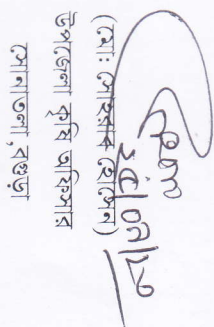 (মোঃ সোহরাব হোসেন)
উপজেলা কৃষি অফিসার
সোনাতলা, বগুড়া